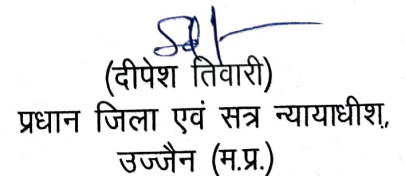 (दीपेश तिवारी)
प्रधान जिला एवं सत्र न्यायाधीश,
उज्जैन (म.प्र.)